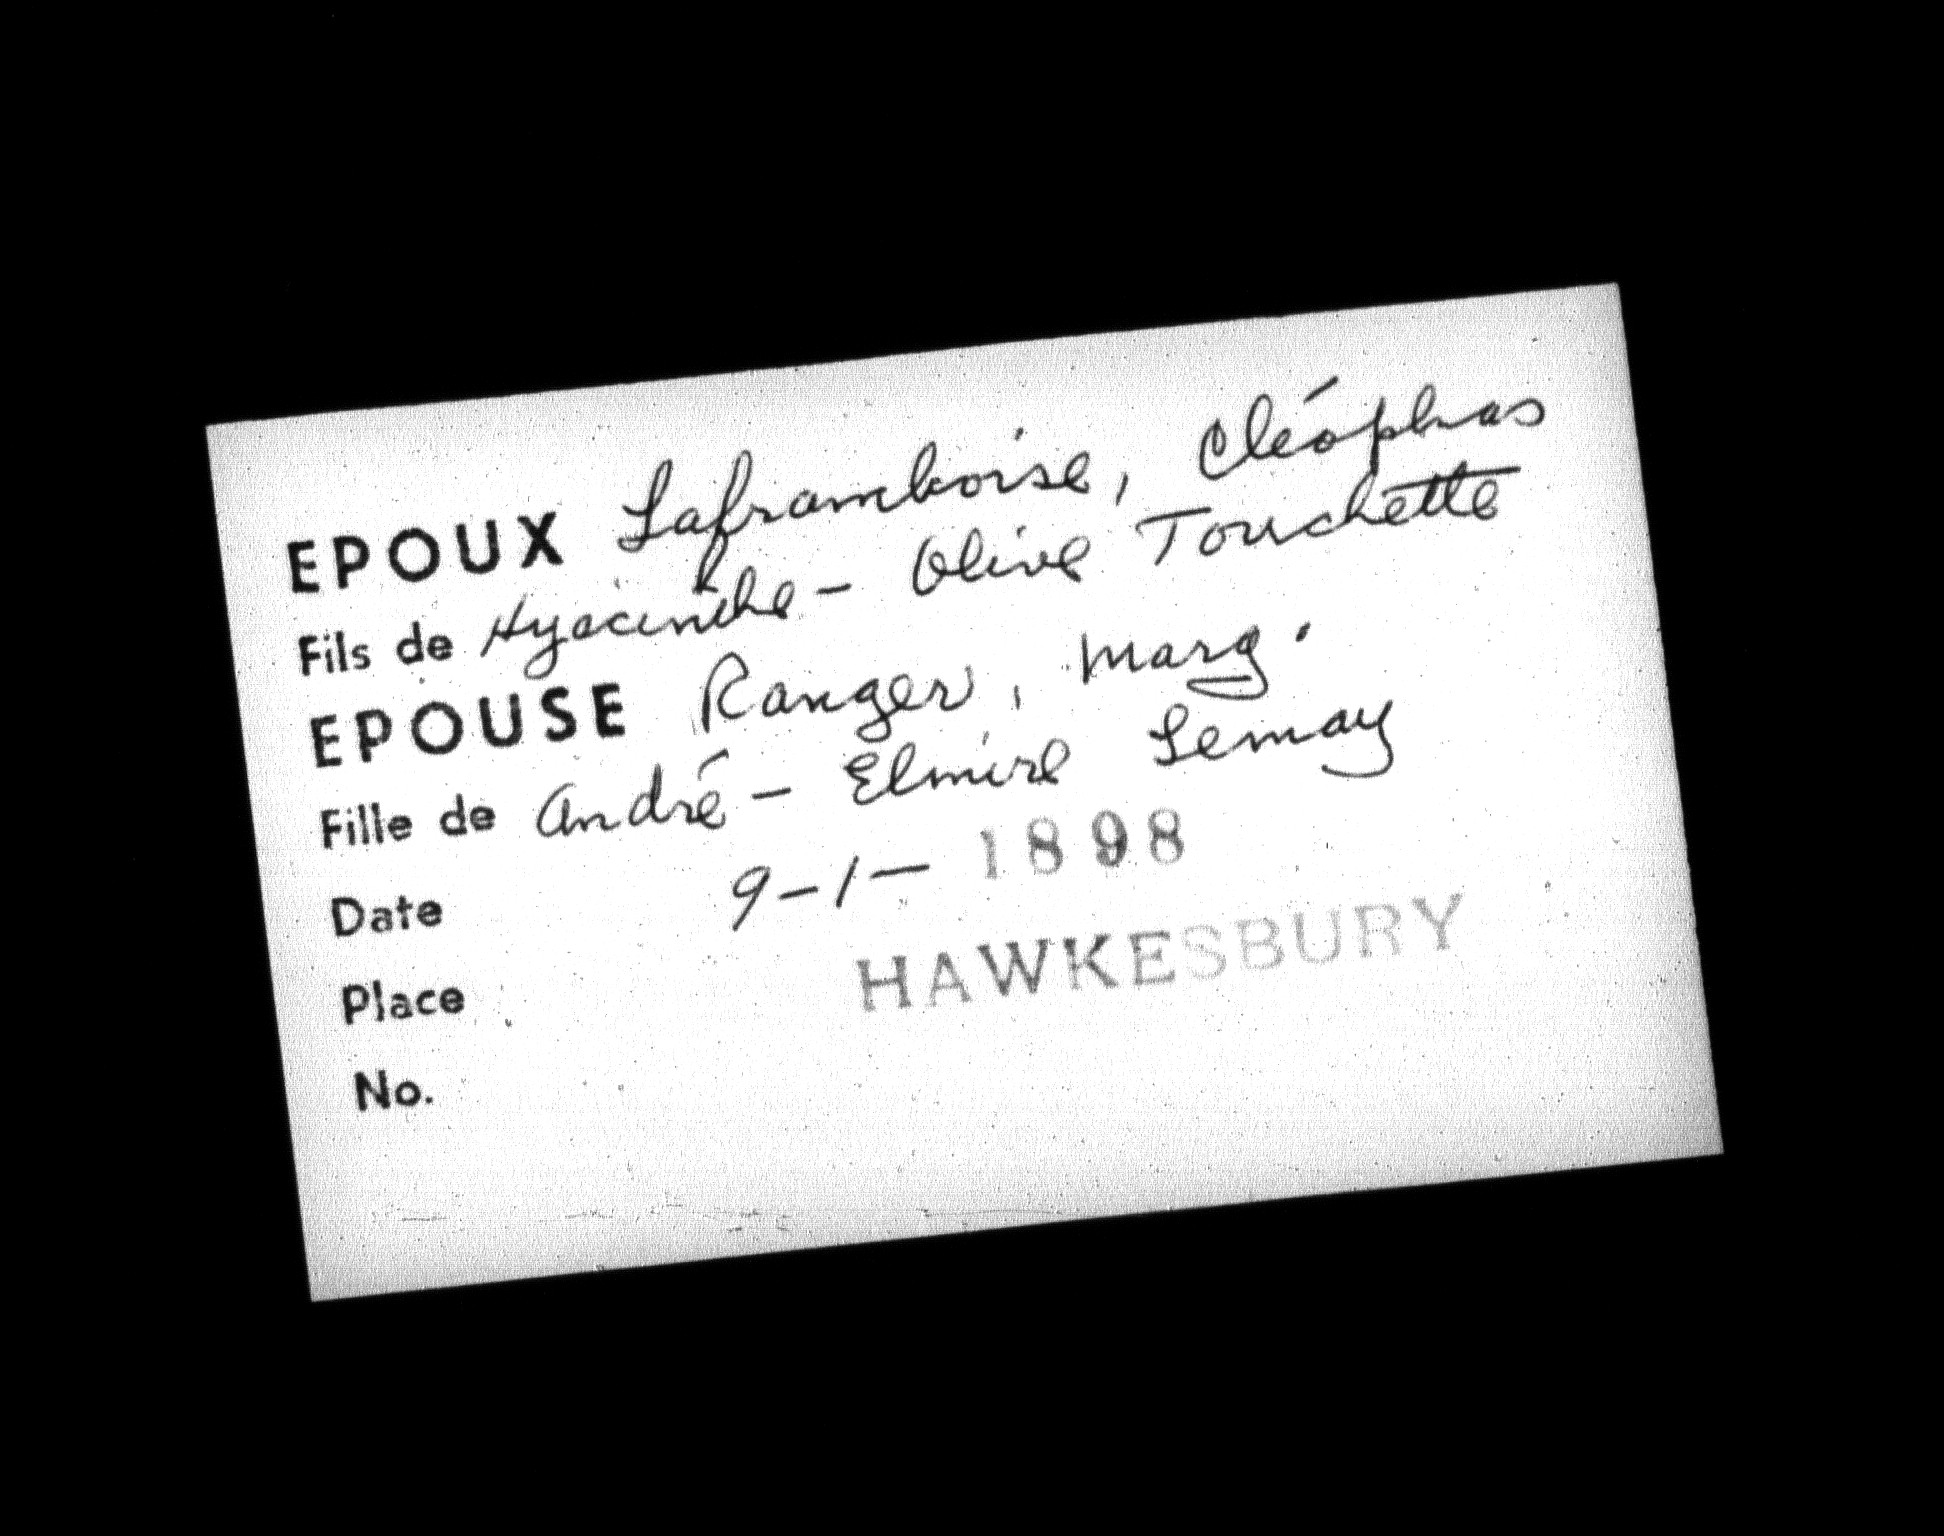 EPOUX Laframboise, Cléophas
Fils de Hyacinthe - Olive Touchette
EPOUSE Ranger, Marg.
Fille de André - Elmire Lemay
Date 9-1-1898
Place HAWKESBURY
No.